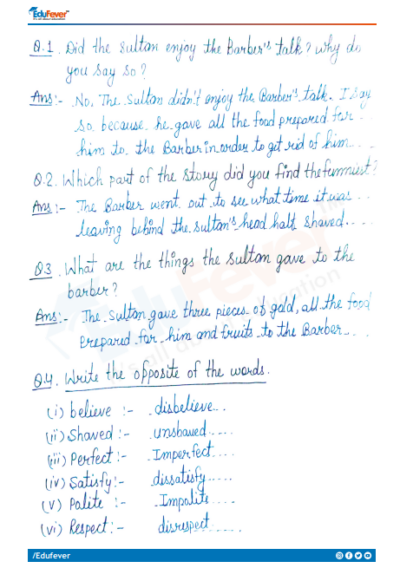 EduFever
Q.1. Did the Sultan enjoy the Barber's talk? why do
you say so?
Ans:- No. The Sultan didn't enjoy the Barber's talk. I say
so because he gave all the food prepared for
him to the Barber in order to get rid of him....
Q.2. Which part of the story did you find the funniest?
Ans:- The Barber went out to see what time it was...
leaving behind the sultan's head half shaved....
Q3. What are the things the Sultan gave to the
barber?
Ans:- The Sultan gave three pieces of gold, all the food
prepared for him and fruits to the Barber...
Q.4. Write the opposite of the words.
(i) believe :- disbelieve...
(ii) Shaved :- unshaved.....
(iii) Perfect :- Imperfect....
(iv) Satisfy :- dissatisfy.....
(v) Polite :- Impolite....
(vi) Respect :- disrespect......
/Edufever